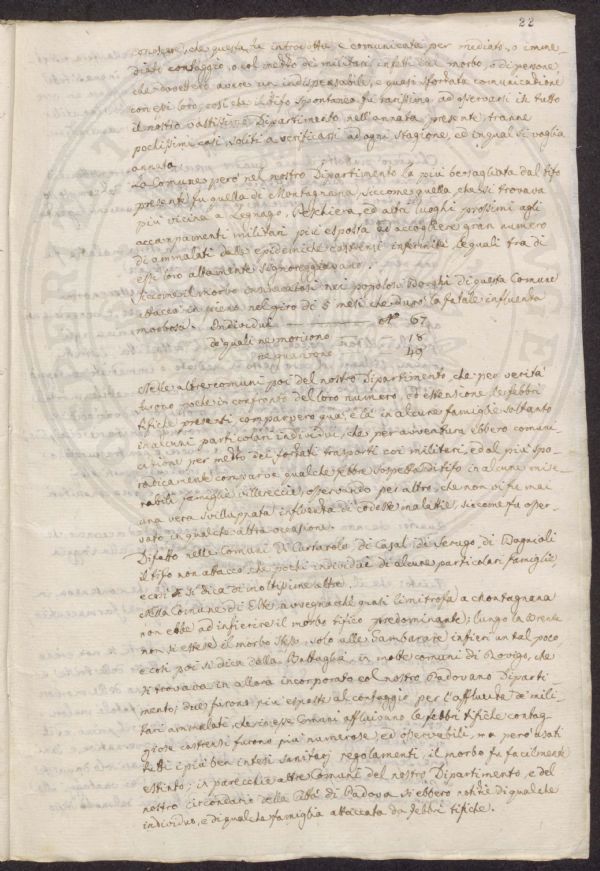 22
conoscere, che questa fu introdotta e comunicata per mediato, o imme-
diato contaggio, o col mezzo dei militari infetti dal morbo, o di persone
che dovettero avere un indispensabile, e quasi sforzata comunicazione
con essi loro, così che il tifo spontaneo fu rarissimo ad osservarsi in tutto
il nostro vastissimo Dipartimento nell'annata presente, tranne
pochissimi casi soliti a verificarsi ad ogni stagione, ed in qualsivoglia
annata.
La Comune però nel nostro Dipartimento la più bersagliata dal tifo
presente fu quella di Montagnana, siccome quella, che si trovava
più vicina a Legnago, Peschiera, ed altri luoghi prossimi agli
accampamenti militari più esposta ad accogliere gran numero
di ammalati dalle epidemiche castrensi infermità, le quali fra di
essi loro altamente signoreggiavano.
Siccome il morbo nei popolosi Borghi di questa Comune
attaccò in pieno nel giro di 5 mesi che durò la fatale influenza
morbosa. Individui N.° 67
de' quali ne morirono 18
ne guarirono 49
Nelle altre comuni poi del nostro Dipartimento, che per verità
furono poche in confronto del loro numero, ed estensione le febbri
tifiche presenti comparvero quà, e là in alcune famiglie soltanto
in alcuni particolari individui, che per avventura ebbero comuni-
cazione per mezzo dei forzati trasporti coi militari, ed al più spo-
radicamente comparve qualche febbre sospetta di tifo in alcune mise-
rabili famiglie villereccie, osservando per altro, che non vi fu mai
una vera sviluppata influenza di codeste malattie, siccome fu osser-
vato in qualche altra occasione.
Difatto nelle Comuni di Curtarolo, di Casal di Serugo, di Bagnoli
il tifo non attaccò che pochi individui di alcune particolari famiglie,
e così si dica di moltissime altre.
Nella Comune di Este avvegnacchè quasi limitrofa a Montagnana
non ebbe ad infierire il morbo tifico predominante; lungo la Brenta
non si estese il morbo stesso, solo alle Gambarare infierì un tal poco
e così poi si dica della Battaglia, in molte comuni di Rovigo, che
si trovava in allora incorporato col nostro Padovano Diparti-
mento; due furono più esposte al contaggio per l'affluire de' mili-
tari ammalati, che in esse Comuni affluivano le febbri tifiche contag-
giose castrensi furono più numerose, ed osservabili, ma però usati
tutti i più ben intesi sanitarj regolamenti, il morbo fu facilmente
estinto; in parecchie altre Comuni del nostro Dipartimento, e del
nostro circondario della Città di Padova si ebbero notizie di qualche
individuo, e di qualche famiglia attaccata da febbri tifiche.